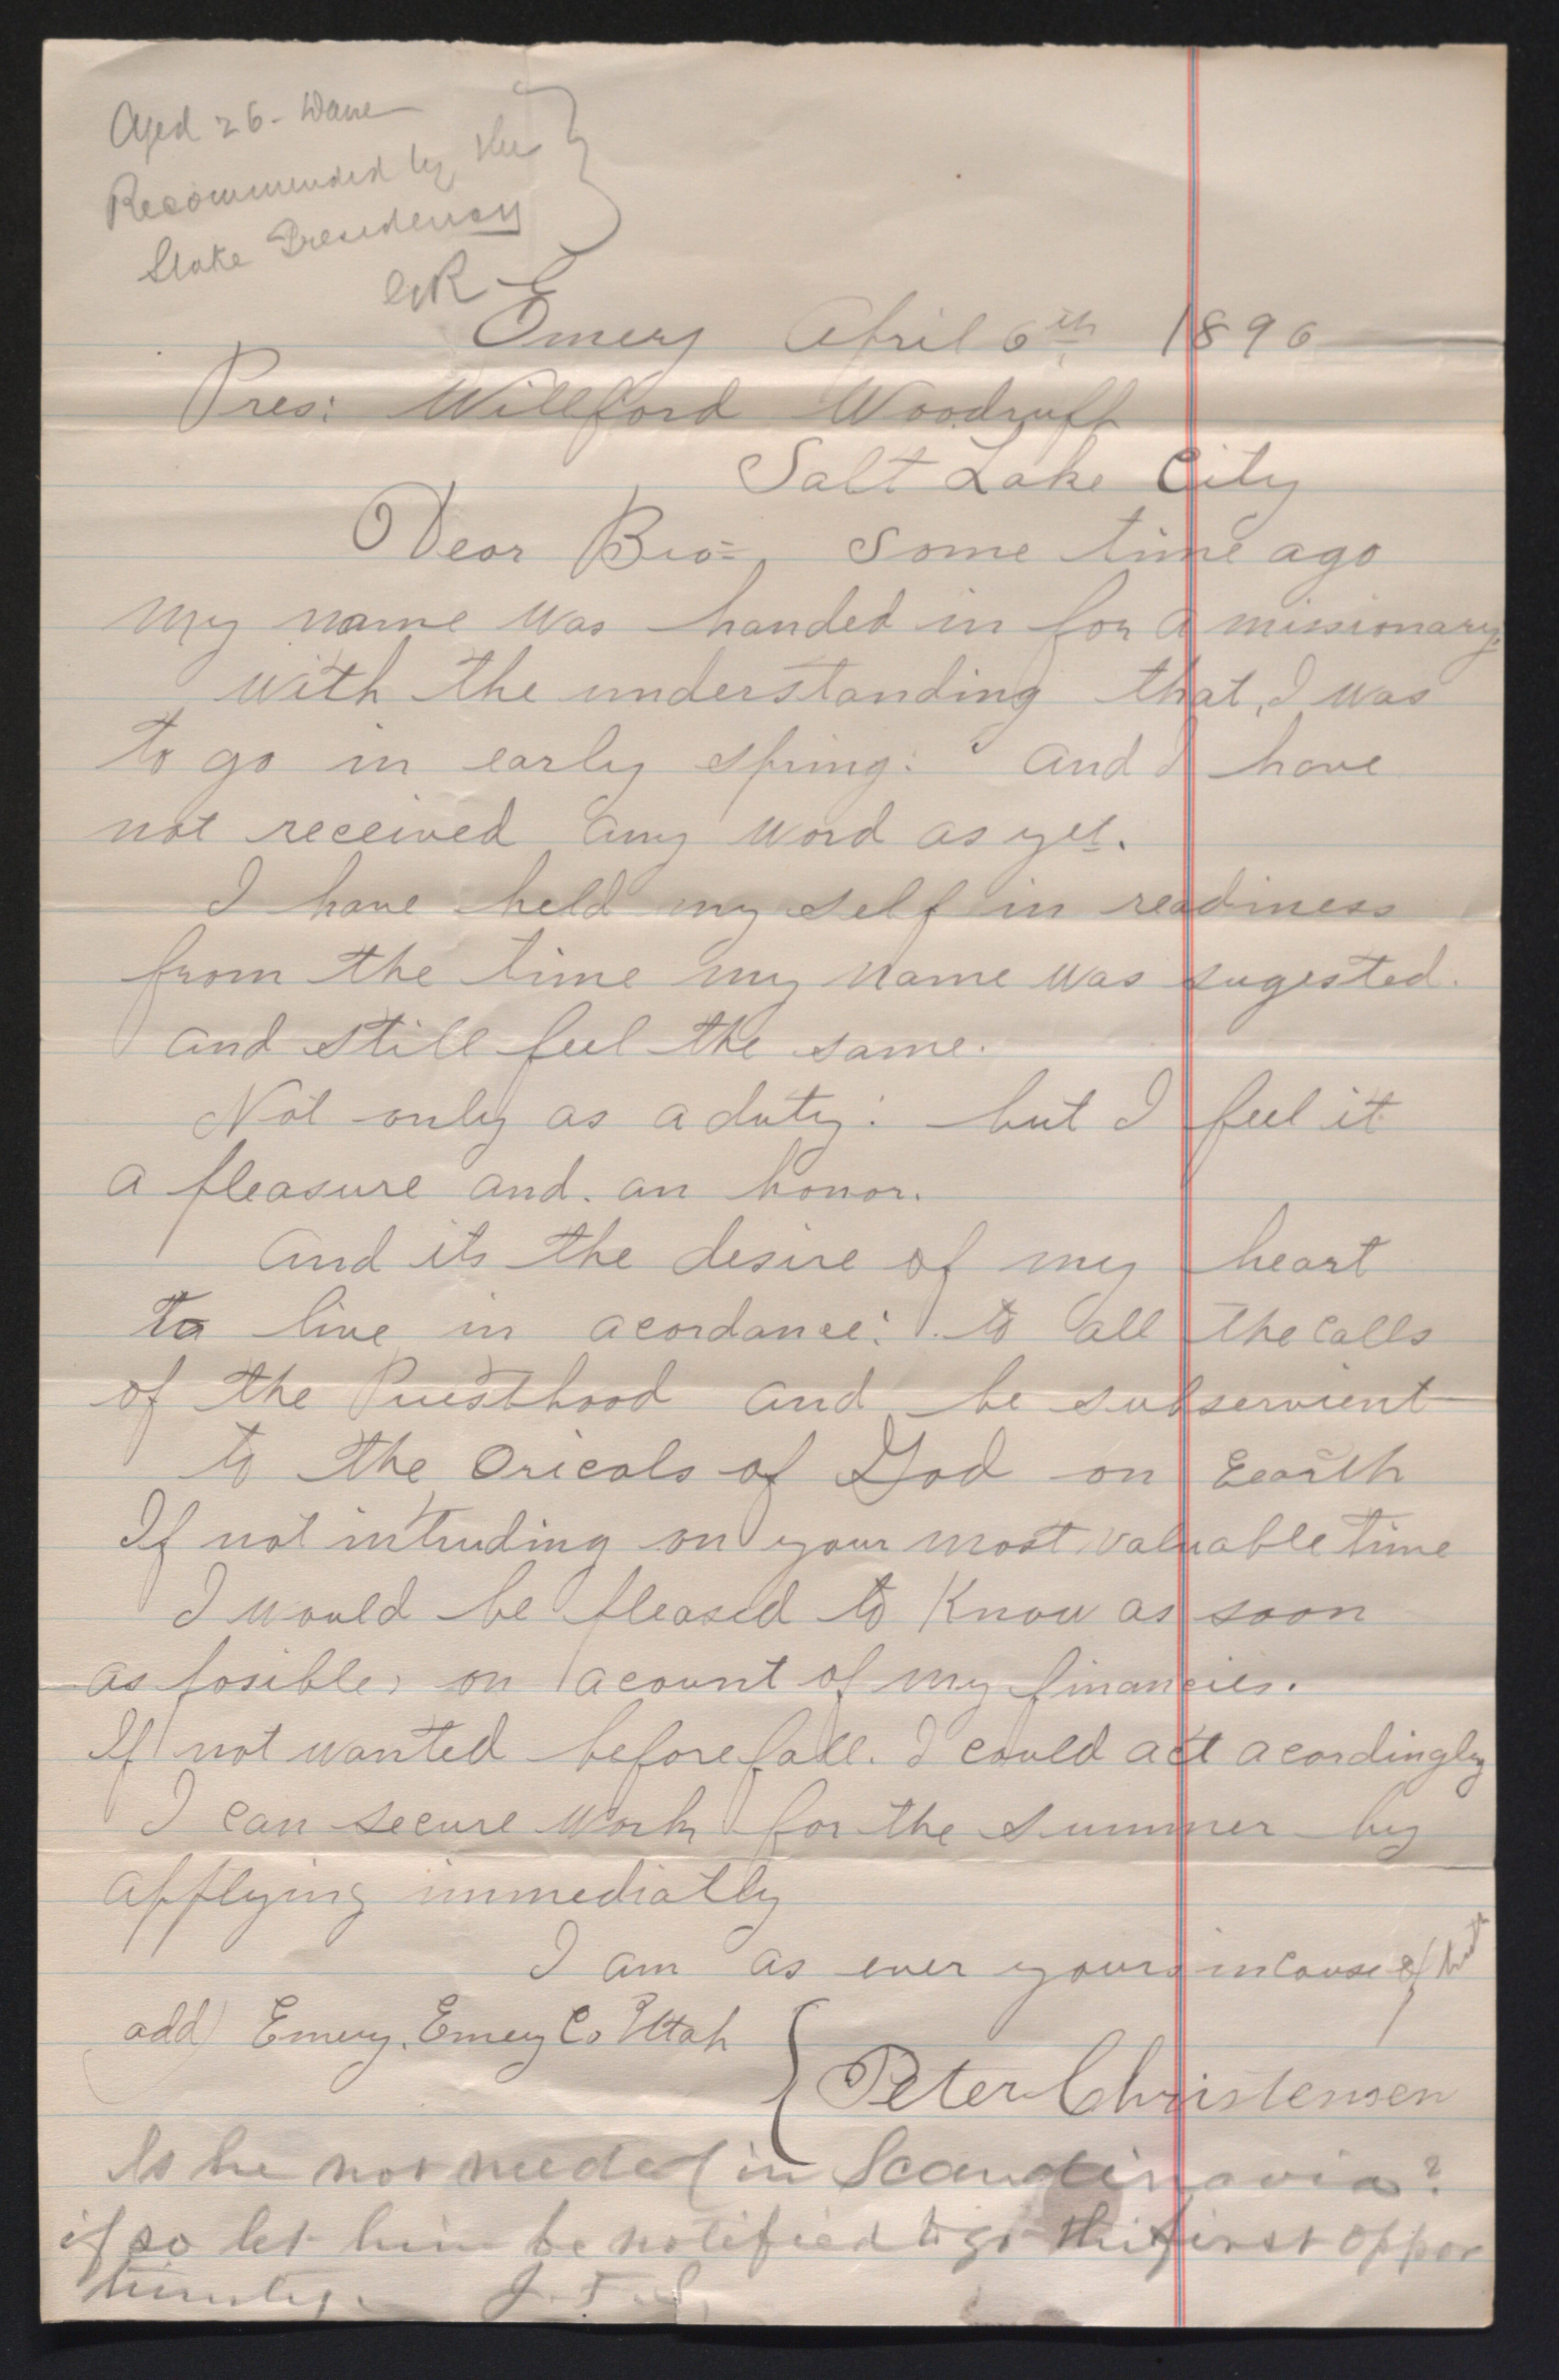 Aged 26 - Dane
Recommended by the
Stake Presidency
GR
Emery April 6th 1896
Pres: Willford Woodruff
Salt Lake City
Dear Bro=, Some time ago
my name was handed in for a missionary,
with the understanding that, I was
to go in early spring: and I have
not received any word as yet.
I have held my self in readiness
from the time my name was sugested.
and still feel the same.
Not only as a duty: but I feel it
a pleasure and. an honor.
And its the desire of my heart
to live in acordance: to all the calls
of the Priesthood and be subservient
to the Oricals of God on Earth
If not intruding on your most valuable time
I would be pleased to Know as soon
as posible, on acount of my financies.
If not wanted before fall. I could act acordingly
I can secure work for the summer by
applying immediatly
I am as ever yours in cause of
add) Emery. Emery Co Utah
Peter Christensen
Is he not needed in Scandinavia?
if so let him be notified to go the first oppor
tunity. J. F. S.